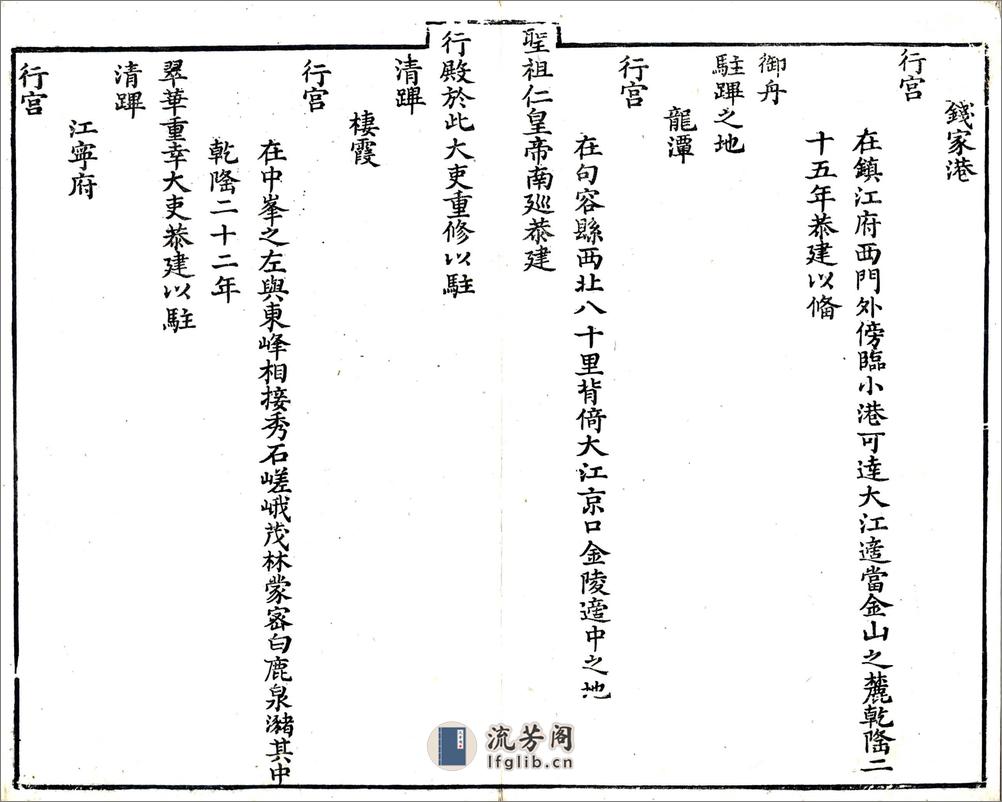 錢家港
行宮
在鎮江府西門外傍臨小港可達大江適當金山之麓乾隆二
十五年恭建以備
御舟
駐蹕之地
龍潭
行宮
在句容縣西北八十里背倚大江京口金陵適中之地
聖祖仁皇帝南廵恭建
行殿於此大吏重修以駐
清蹕
棲霞
行宮
在中峯之左與東峰相接秀石嵯峨茂林蒙密白鹿泉瀦其中
乾隆二十二年
翠華重幸大吏恭建以駐
清蹕
江寧府
行宮
流芳阁
lfglib.cn